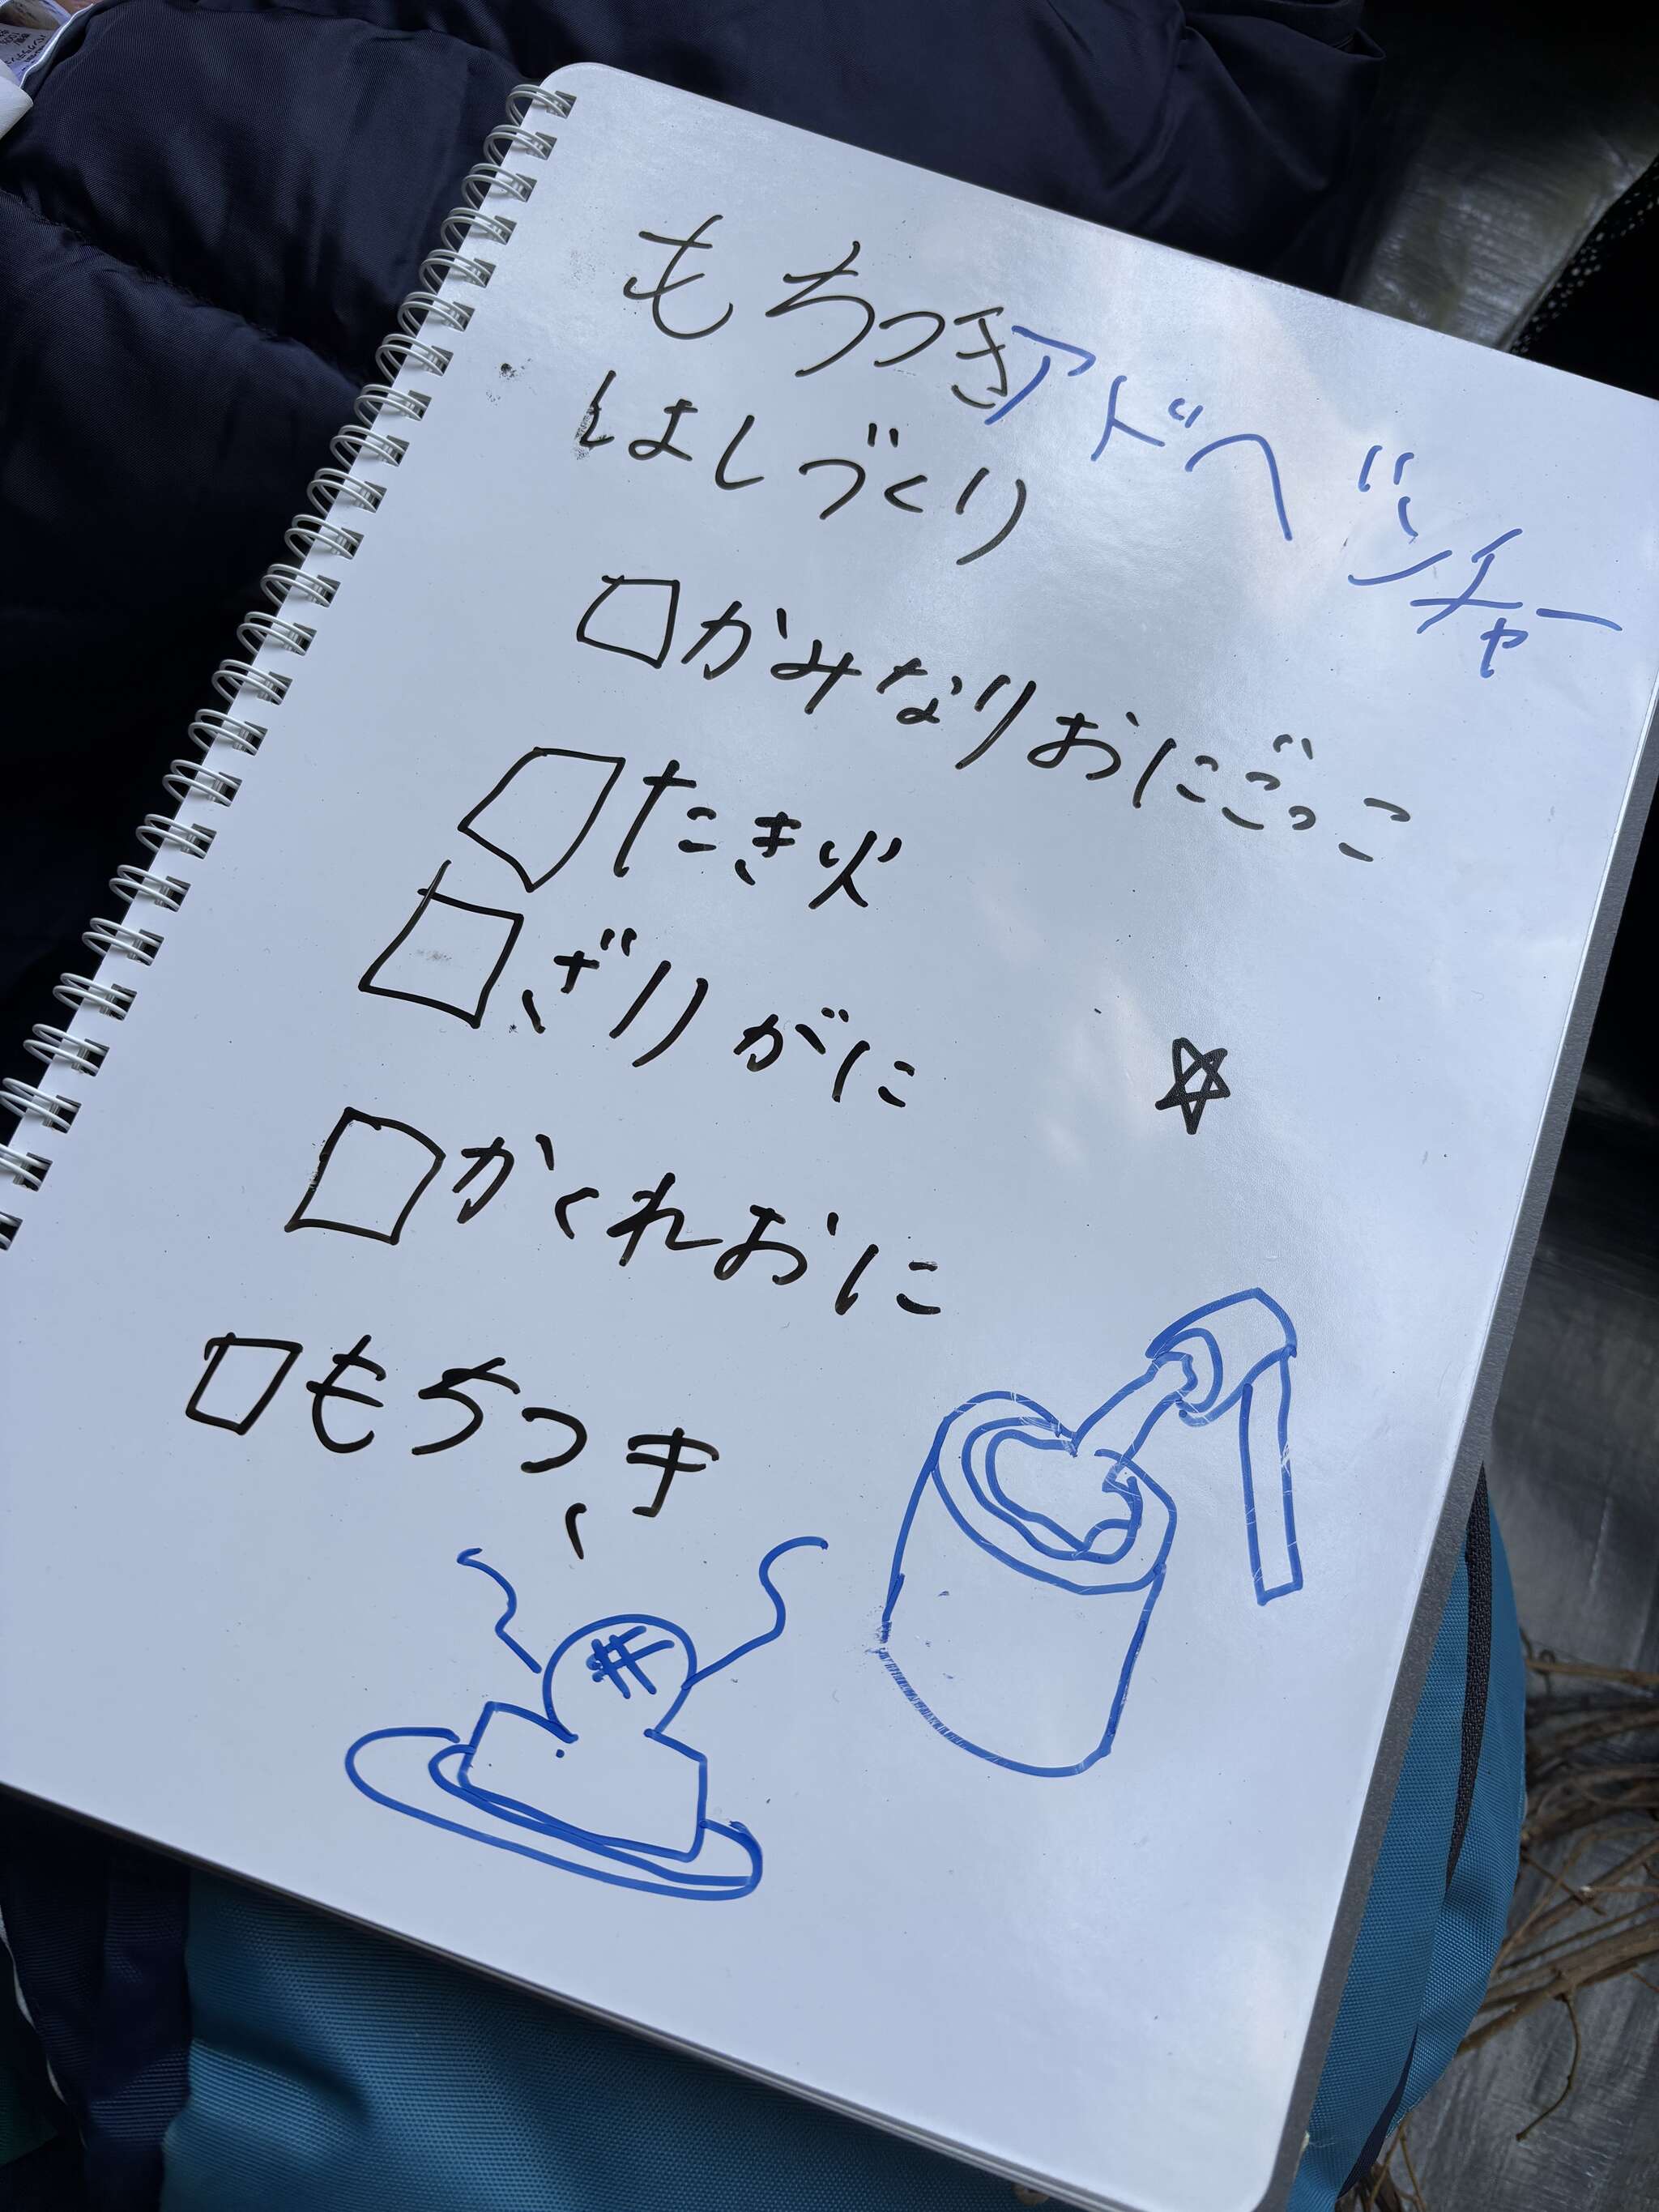 もちつきアドベンチャー
はしづくり
□かみなりおにごっこ
□たき火
□ざりがに
□かくれおに
□もちつき